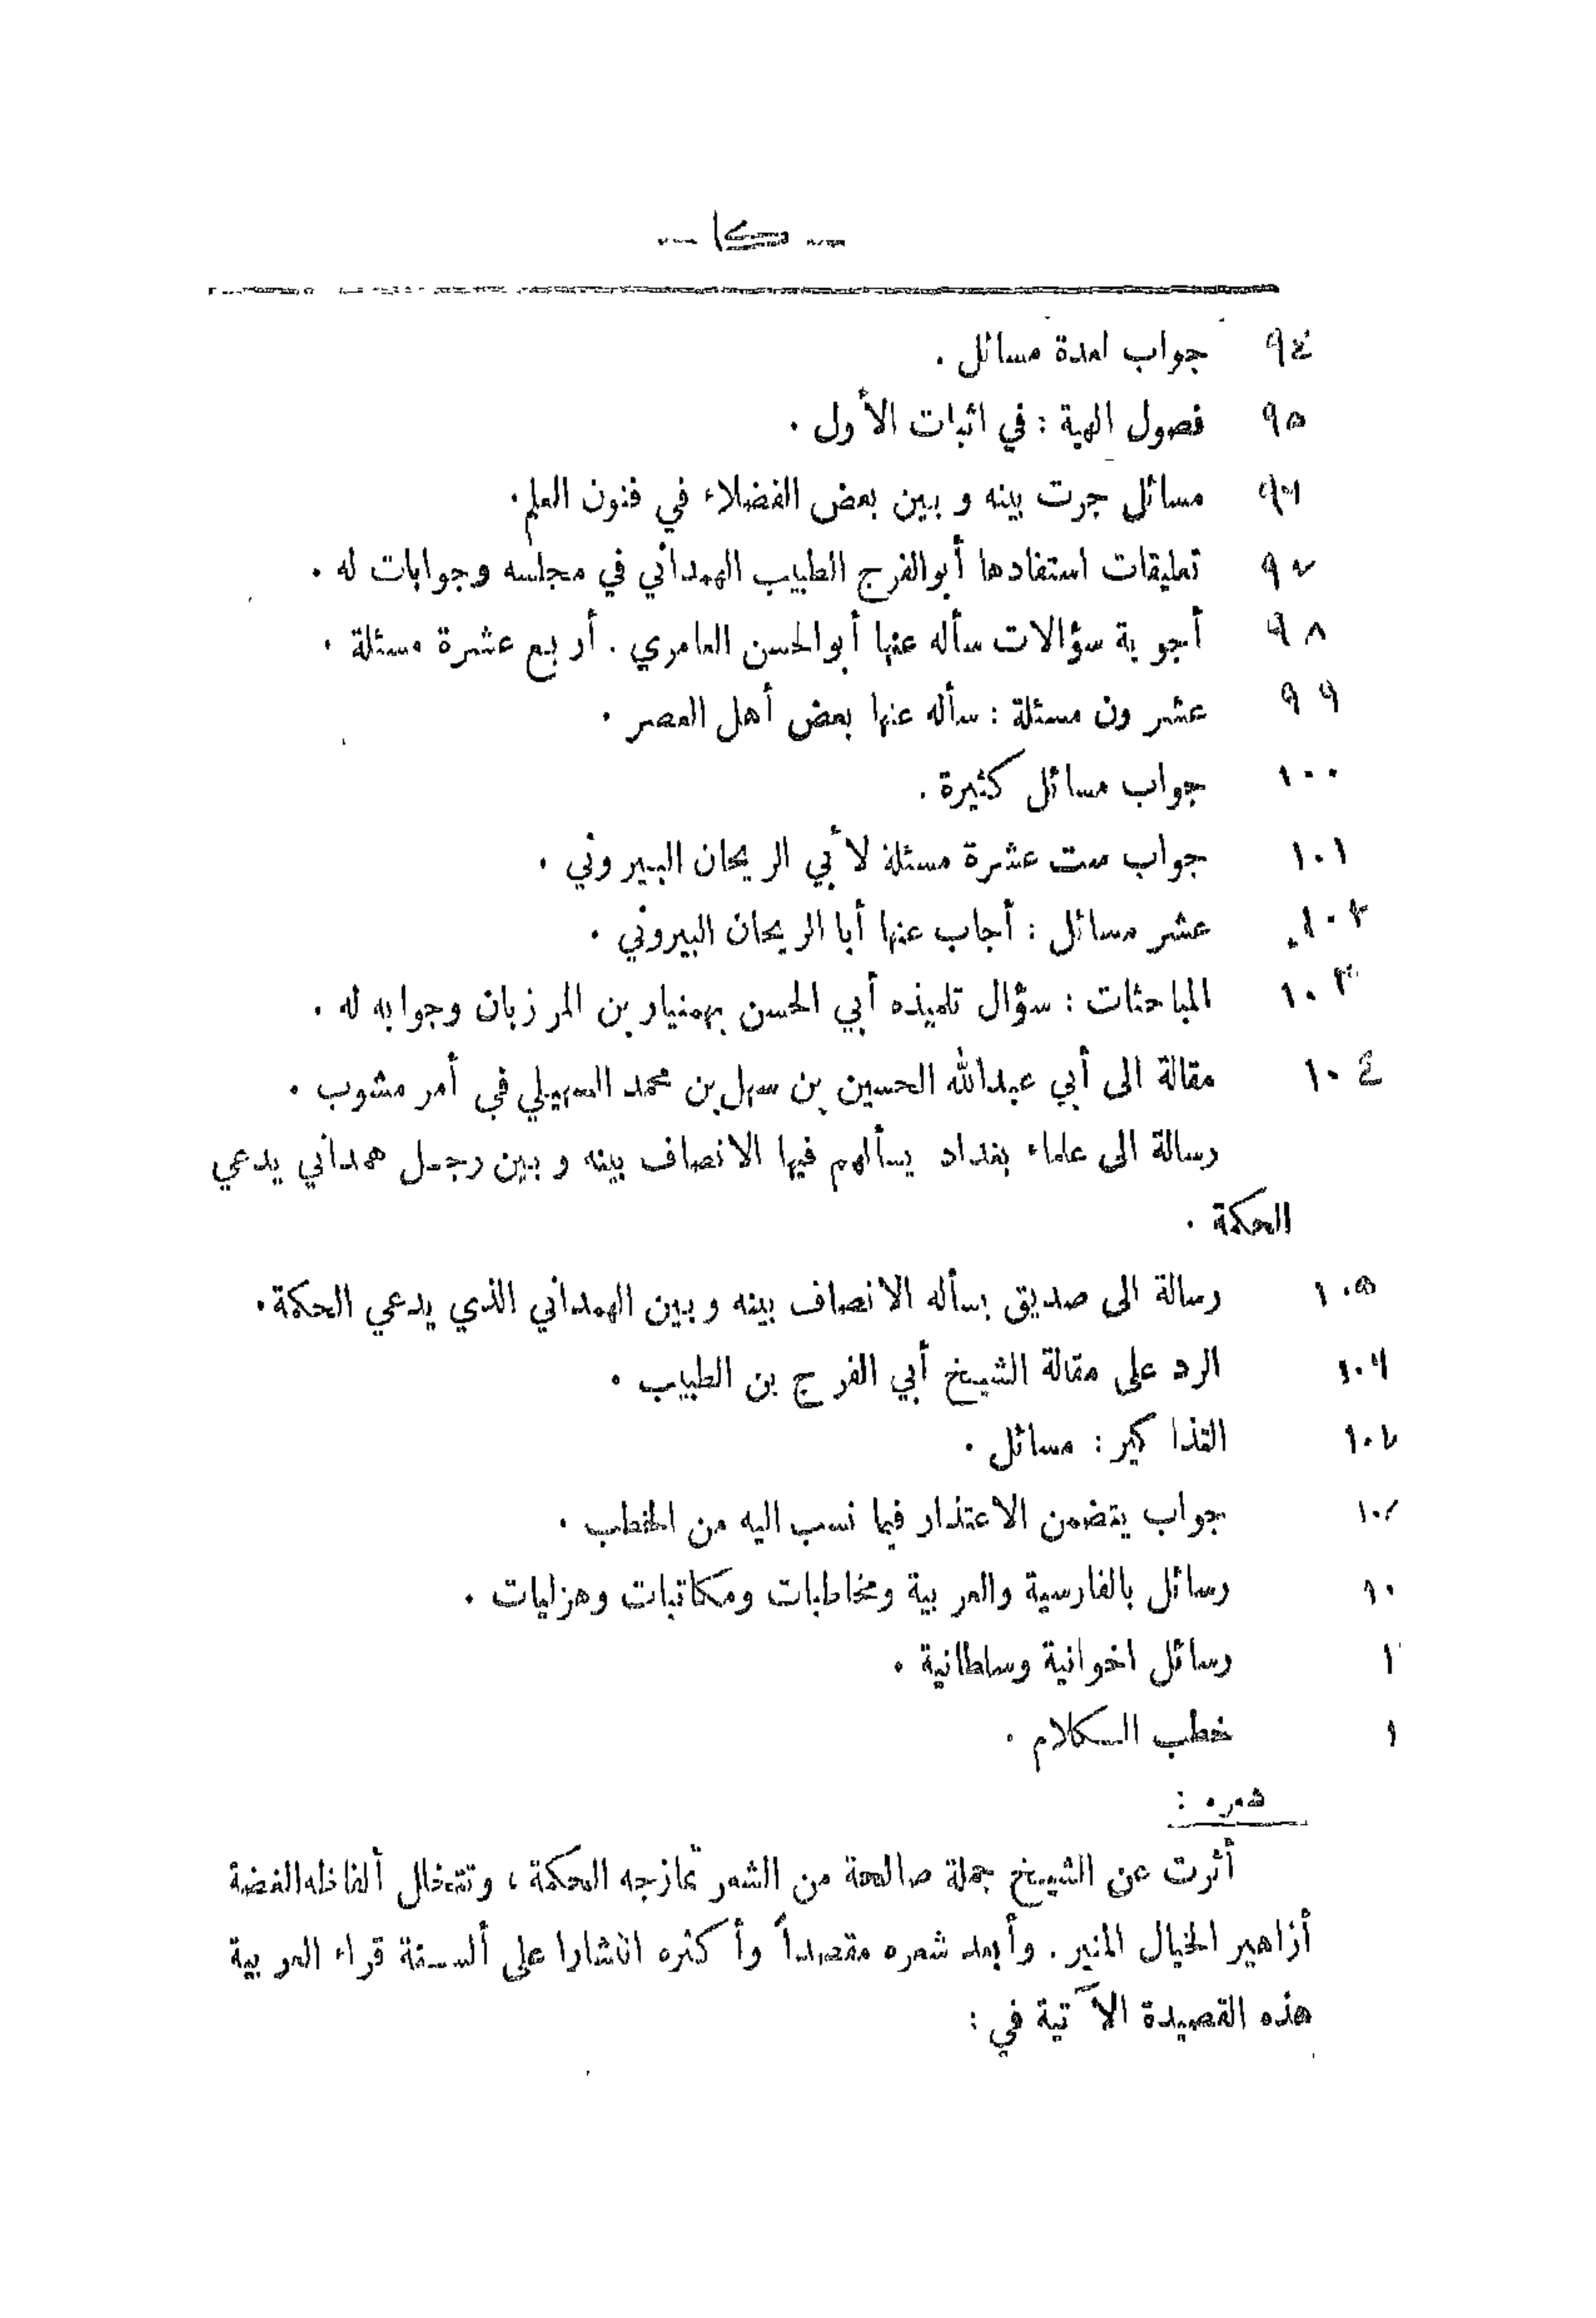 -- كا --
٩٤ جواب لعدة مسائل .
٩٥ فصول الهية : في اثبات الأول .
٩٦ مسائل جرت بينه وبين بعض الفضلاء في فنون العلم.
٩٧ تعليقات استفادها أبوالفرج الطبيب الهمداني في مجلسه وجوابات له .
٩٨ أجوبة سؤالات سأله عنها أبوالحسن العامري . أربع عشرة مسئلة .
٩٩ عشرون مسئلة : سأله عنها بعض أهل العصر .
١٠٠ جواب مسائل كثيرة .
١٠١ جواب ست عشرة مسئلة لأبي الريحان البيروني .
١٠٢ عشر مسائل : أجاب عنها أبا الريحان البيروني .
١٠٣ المباحثات : سؤال تلميذه أبي الحسن بهمنيار بن المرزبان وجوابه له .
١٠٤ مقالة الى أبي عبدالله الحسين بن سهل بن محمد السهيلي في أمر مشوب .
رسالة الى علماء بغداد يسألهم فيها الانصاف بينه وبين رجل همداني يدعي
الحكمة .
١٠٥ رسالة الى صديق يسأله الانصاف بينه وبين الهمداني الذي يدعي الحكمة.
١٠٦ الرد على مقالة الشيخ أبي الفرج بن الطبيب .
١٠٧ التذاكير : مسائل .
١٠ جواب يتضمن الاعتذار فيما نسب اليه من الخطب .
١٠ رسائل بالفارسية والعربية ومخاطبات ومكاتبات وهزليات .
١ رسائل اخوانية وسلطانية .
١ خطب الكلام .
شعره :
أثرت عن الشيخ جملة صالحة من الشعر تمازجه الحكمة ، وتتخلل ألفاظه الغضة
أزاهير الخيال المنير . وأبعد شعره مقصداً وأكثره انتشارا على ألسنة قراء العربية
هذه القصيدة الآتية في :